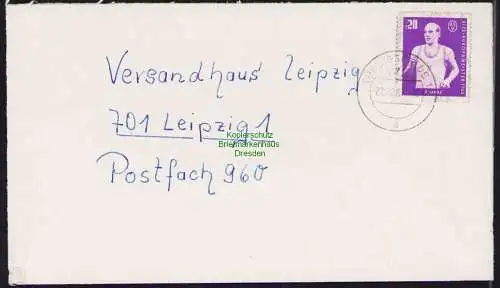 20
Versandhaus Leipzig
701 Leipzig 1
Kopierschutz
Briefmarkenhaus
Dresden
Postfach 960